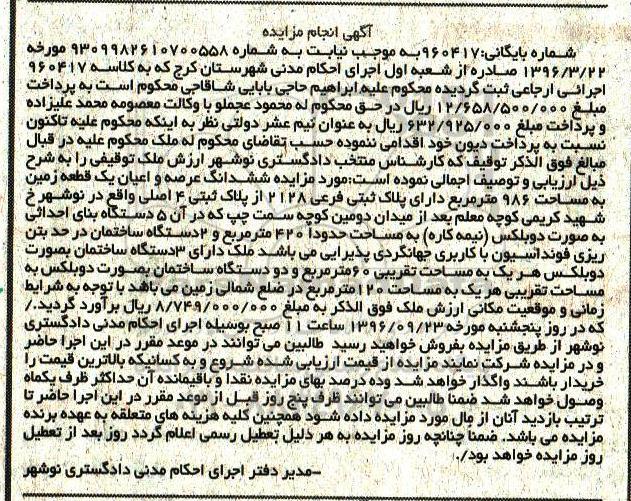 آگهی انجام مزایده
شماره بایگانی:۹۶۰۴۱۷به موجب نیابت به شماره ۹۳۰۹۹۸۲۶۱۰۷۰۰۵۵۸ مورخه
۱۳۹۶/۳/۲۲ صادره از شعبه اول اجرای احکام مدنی شهرستان کرج که به کلاسه ۹۶۰۴۱۷
اجرائی ارجاعی ثبت گردیده محکوم علیه ابراهیم حاجی بابایی شاقاجی محکوم است به پرداخت
مبلغ ۱۲/۶۵۸/۵۰۰/۰۰۰ ریال در حق محکوم له محمود عجملو با وکالت معصومه محمد علیزاده
و پرداخت مبلغ ۶۳۲/۹۲۵/۰۰۰ ریال به عنوان نیم عشر دولتی نظر به اینکه محکوم علیه تاکنون
نسبت به پرداخت دیون خود اقدامی ننموده حسب تقاضای محکوم له ملک محکوم علیه در قبال
مبالغ فوق الذکر توقیف که کارشناس منتخب دادگستری نوشهر ارزش ملک توقیفی را به شرح
ذیل ارزیابی و توصیف اجمالی نموده است:مورد مزایده ششدانگ عرصه و اعیان یک قطعه زمین
به مساحت ۹۸۶ مترمربع دارای پلاک ثبتی فرعی ۲۱۲۸ از پلاک ثبتی ۴ اصلی واقع در نوشهر خ
شهید کریمی کوچه معلم بعد از میدان دومین کوچه سمت چپ که در آن ۵ دستگاه بنای احداثی
به صورت دوبلکس (نیمه کاره) به مساحت حدودا ۴۲۰ مترمربع و ۲دستگاه ساختمان در حد بتن
ریزی فونداسیون با کاربری جهانگردی پذیرایی می باشد ملک دارای ۳دستگاه ساختمان بصورت
دوبلکس هر یک به مساحت تقریبی ۶۰مترمربع و دو دستگاه ساختمان بصورت دوبلکس به
مساحت تقریبی هر یک به مساحت ۱۲۰مترمربع در ضلع شمالی زمین می باشد با توجه به شرایط
زمانی و موقعیت مکانی ارزش ملک فوق الذکر به مبلغ ۸/۷۴۹/۰۰۰/۰۰۰ ریال برآورد گردید./
که در روز پنجشنبه مورخه ۱۳۹۶/۰۹/۲۳ ساعت ۱۱ صبح بوسیله اجرای احکام مدنی دادگستری
نوشهر از طریق مزایده بفروش خواهید رسید طالبین می توانند در موعد مقرر در این اجرا حاضر
و در مزایده شرکت نمایند مزایده از قیمت ارزیابی شده شروع و به کسانیکه بالاترین قیمت را
خریدار باشند واگذار خواهد شد وده درصد بهای مزایده نقدا و باقیمانده آن حداکثر ظرف یکماه
وصول خواهد شد ضمنا طالبین می توانند ظرف پنج روز قبل از موعد مقرر در این اجرا حاضر تا
ترتیب بازدید آنان از مال مورد مزایده داده شود همچنین کلیه هزینه های متعلقه به عهده برنده
مزایده می باشد. ضمنا چنانچه روز مزایده به هر دلیل تعطیل رسمی اعلام گردد روز بعد از تعطیل
روز مزایده خواهد بود./
-مدیر دفتر اجرای احکام مدنی دادگستری نوشهر